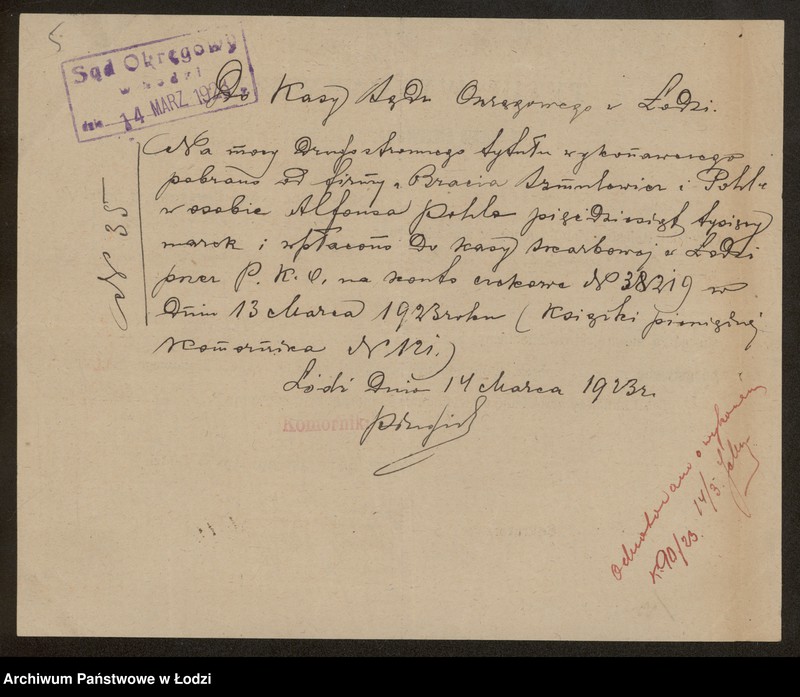 5.
Sąd Okręgowy
w Łodzi
dnia 14 MARZ. 1923
Do Kasy Sądu Okręgowego w Łodzi.
Na mocy drugostronnego tytułu wykonawczego
pobrano od firmy „Bracia Szmulowicz i Pohl"
w osobie Alfonsa Pohla pięćdziesiąt tysięcy
marek i wpłacono do kasy skarbowej w Łodzi
przez P. K. O. na konto czekowe N 38219 w
dniu 13 Marca 1923 roku (Książki pieniężnej
Komornika N 121.)
Łódź dnia 14 Marca 1923 r.
Komornik
N 35
Odnotowano o wykonaniu
14/3.
Archiwum Państwowe w Łodzi